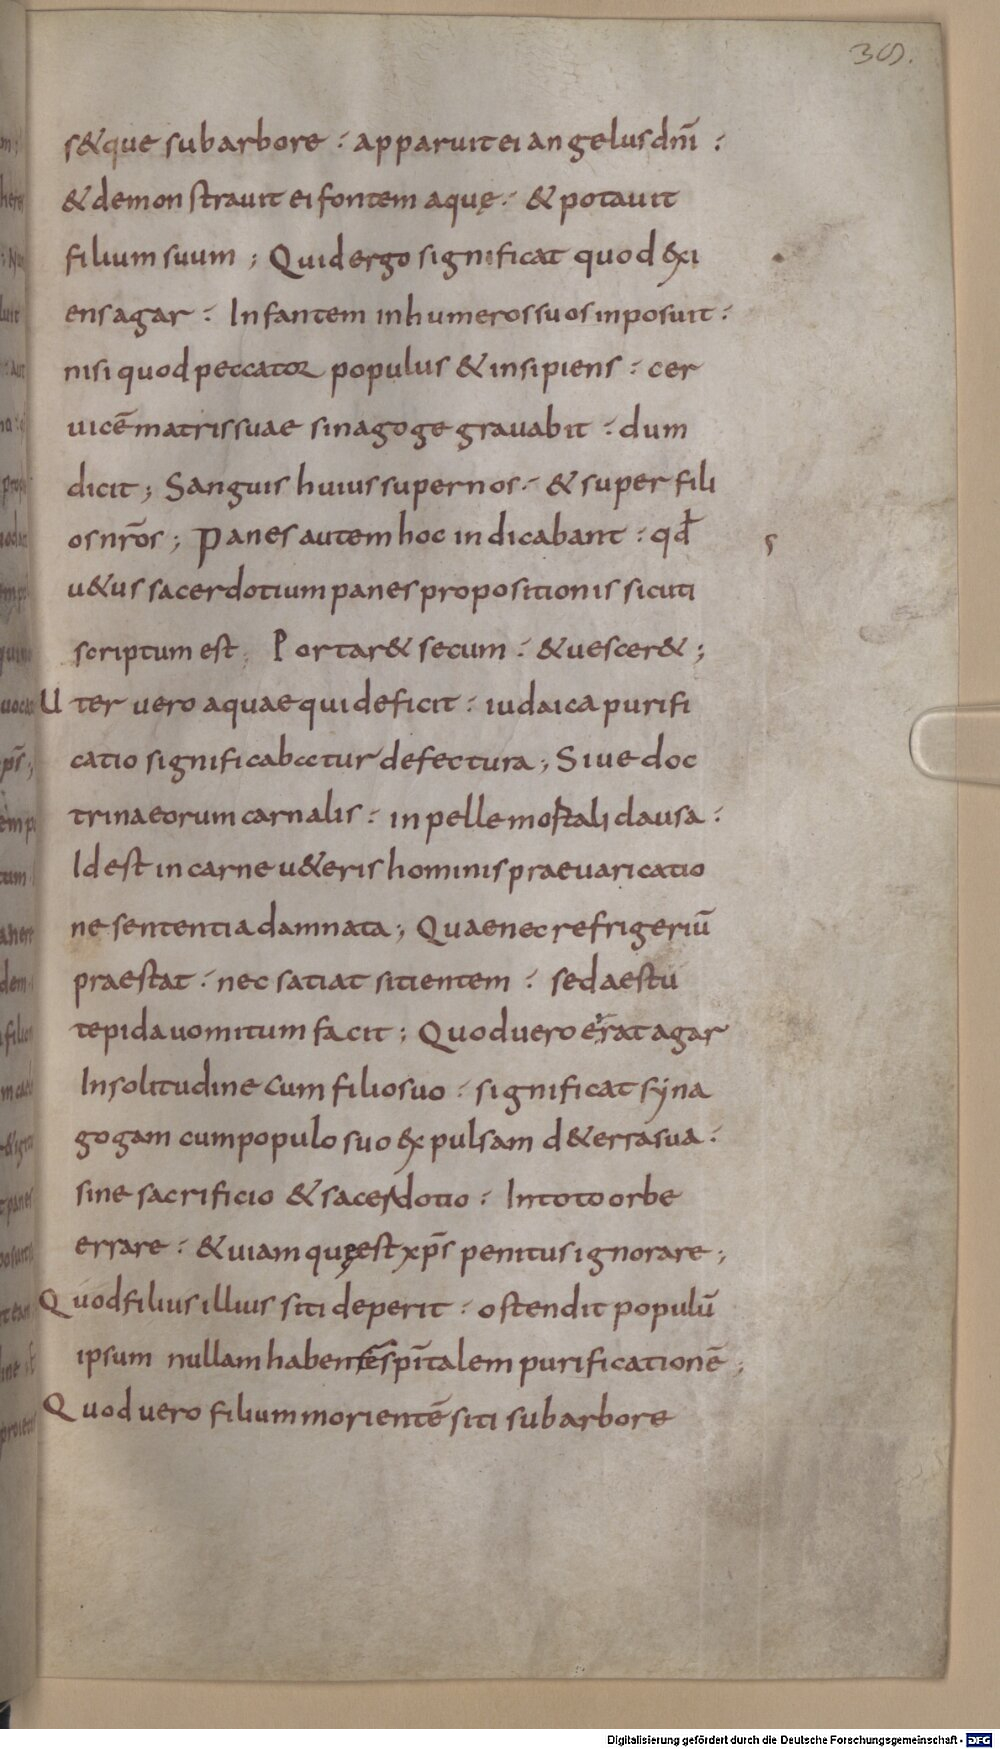 39.
s&que sub arbore : apparuit ei angelus dnī :
& demonstrauit ei fontem aquę : & potauit
filium suum ; Quid ergo significat quod exi
ens agar : Infantem in humeros suos inposuit :
nisi quod peccator populus & insipiens : cer
uicē matris suae sinagoge grauabit : dum
dicit ; Sanguis huius super nos : & super fili
os nr̄os ; Panes autem hoc indicabant : qđ
u&us sacerdotium panes propositionis sicuti
scriptum est ; Portar& secum : & uescer& ;
Uter vero aquae qui deficit : iudaica purifi
catio significabatur defectura ; Siue doc
trina eorum carnalis : in pelle mortali clausa :
Id est in carne u&eris hominis praeuaricatio
ne sententia damnata ; Quae nec refrigeriū
praestat : nec satiat sitientem : sed aestu
tepida uomitum facit ; Quod vero errat agar
In solitudine cum filio suo : significat syna
gogam cum populo suo expulsam de terra sua :
sine sacrificio & sacerdotio : In toto orbe
errare : & uiam quę est xp̄s penitus ignorare ;
Quod filius illius siti deperit : ostendit populū
ipsum nullam habentē sp̄italem purificationē ;
Quod vero filium morientē siti sub arbore
Digitalisierung gefördert durch die Deutsche Forschungsgemeinschaft - DFG